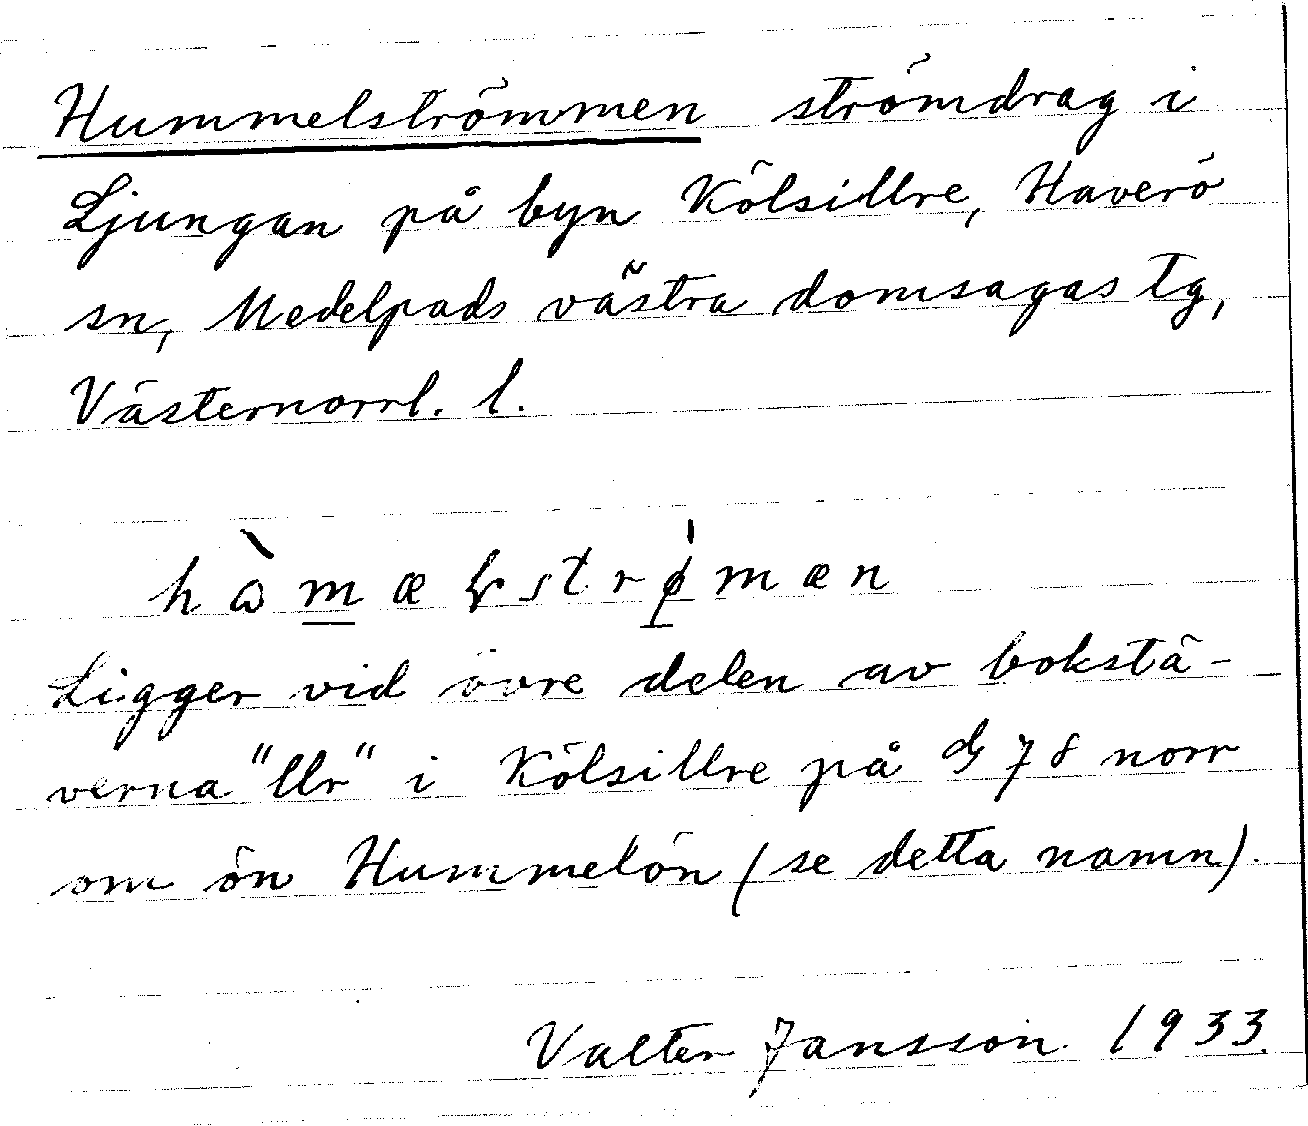 Hummelströmmen strömdrag i
Ljungan på byn Kölsillre, Haverö
sn, Medelpads västra domsagas tg,
Västernorrl. l.
Ligger vid övre delen av bokstä-
verna "llr" i Kölsillre på 78 norr
om ön Hummelön (se detta namn).
Valter Jansson 1933.